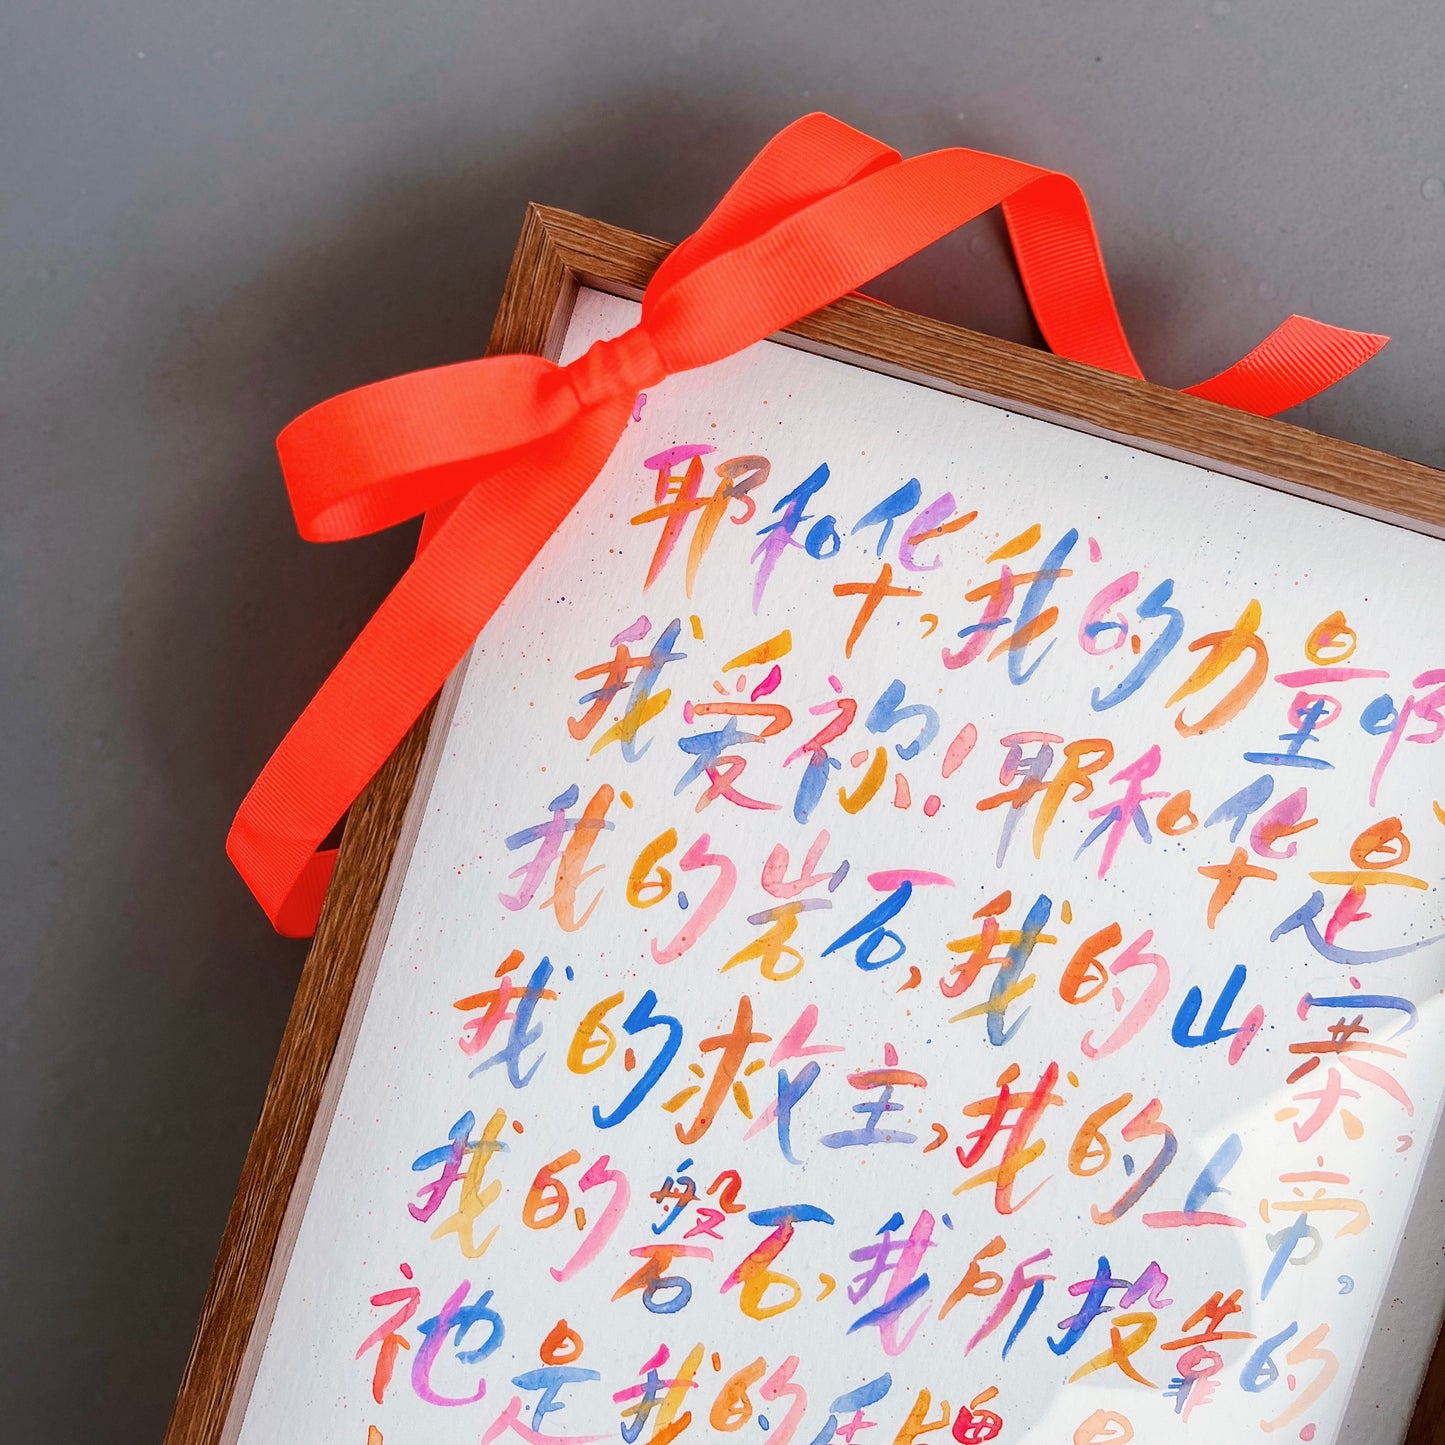 耶和華,我的力量啊
我愛祢!耶和華是
我的岩石,我的山寨,
我的救主,我的上帝,
我的磐石,我所投靠的
祂是我的盾牌